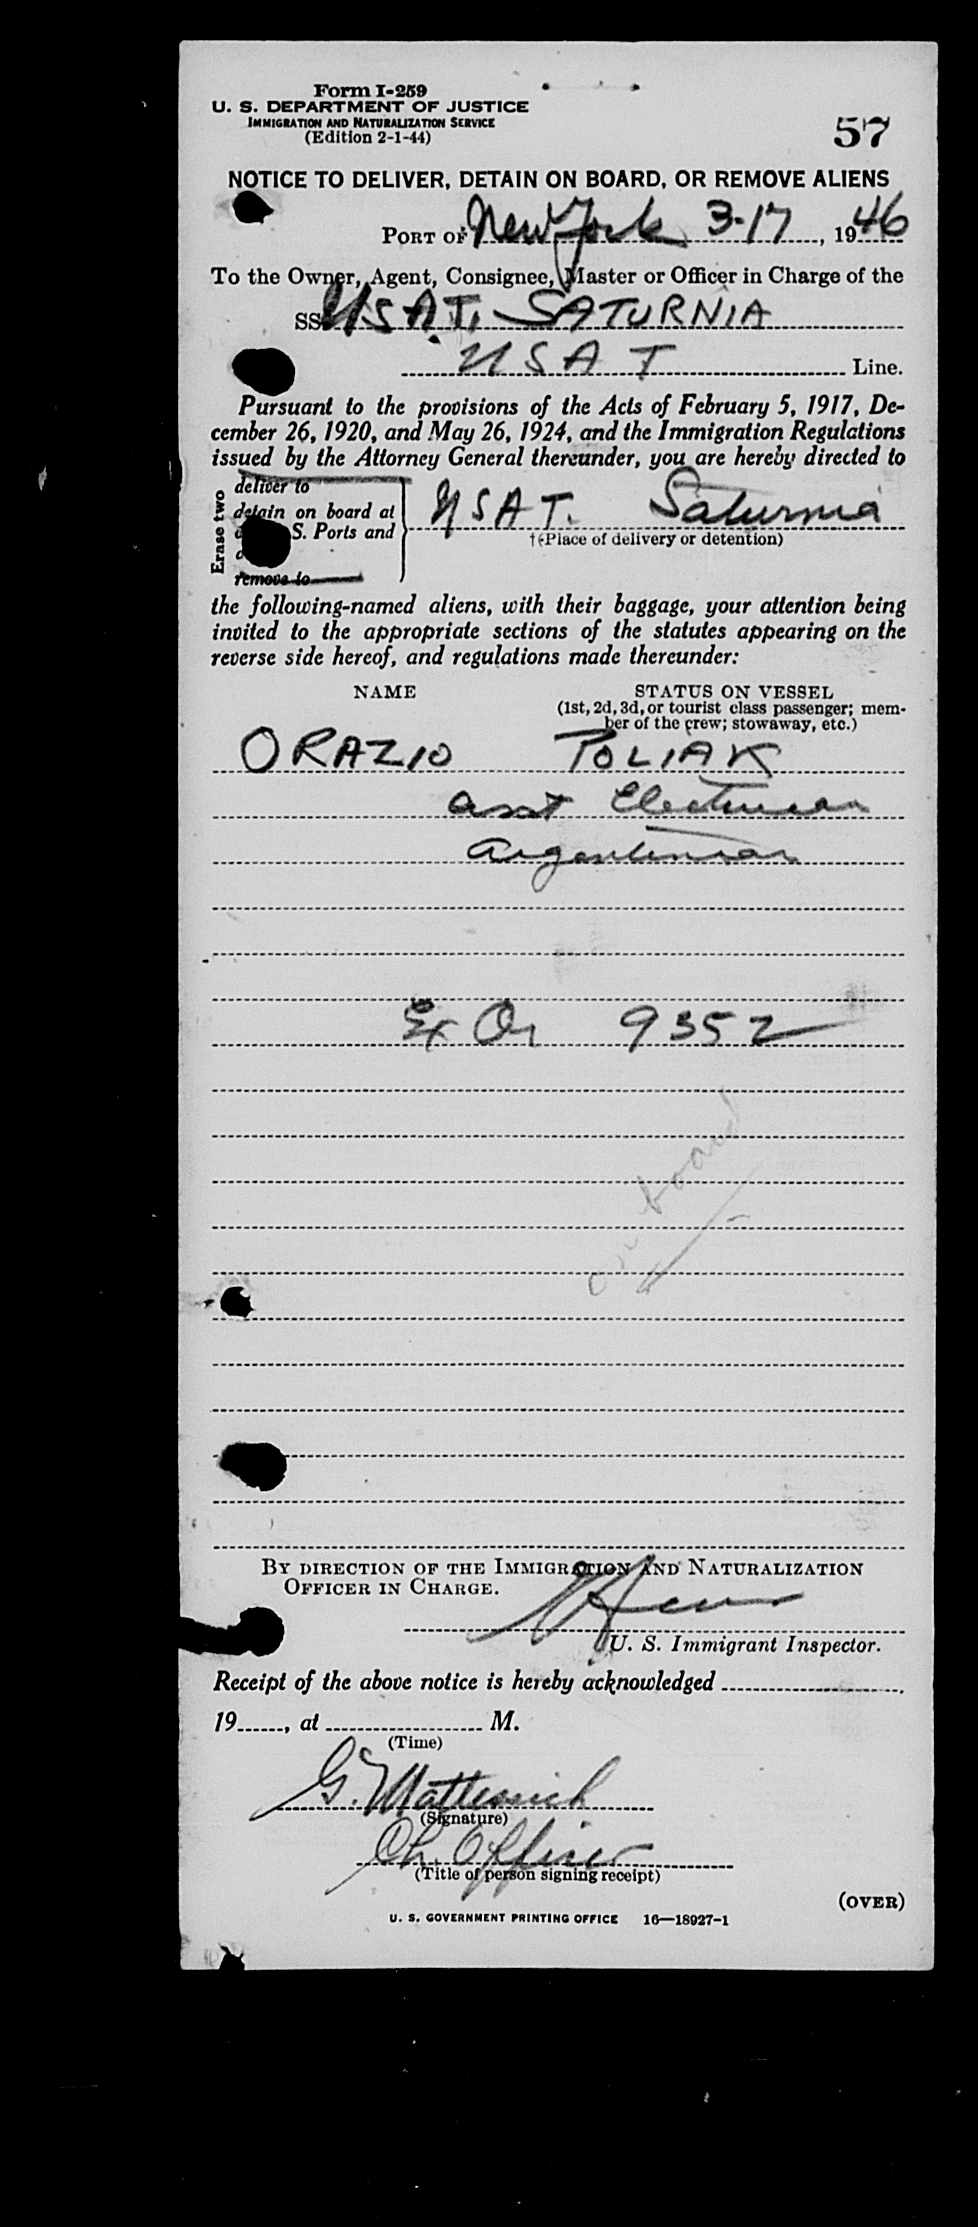 Form I-259
U. S. DEPARTMENT OF JUSTICE
IMMIGRATION AND NATURALIZATION SERVICE
(Edition 2-1-44)
57
NOTICE TO DELIVER, DETAIN ON BOARD, OR REMOVE ALIENS
PORT OF New York 3-17, 1946
To the Owner, Agent, Consignee, Master or Officer in Charge of the
SS USAT. SATURNIA
USAT Line.
Pursuant to the provisions of the Acts of February 5, 1917, De-
cember 26, 1920, and May 26, 1924, and the Immigration Regulations
issued by the Attorney General thereunder, you are hereby directed to
Erase two
deliver to
detain on board at
S. Ports and
remove to
USAT. Saturnia
†(Place of delivery or detention)
the following-named aliens, with their baggage, your attention being
invited to the appropriate sections of the statutes appearing on the
reverse side hereof, and regulations made thereunder:
NAME STATUS ON VESSEL
(1st, 2d, 3d, or tourist class passenger; mem-
ber of the crew; stowaway, etc.)
ORAZIO POLIAK
asst Electrician
Argentinian
Ex Or 9352
on board
BY DIRECTION OF THE IMMIGRATION AND NATURALIZATION
OFFICER IN CHARGE.
U. S. Immigrant Inspector.
Receipt of the above notice is hereby acknowledged
19......, at ...................... M.
(Time)
G. Mattessich
(Signature)
Ch. Officer
(Title of person signing receipt)
(OVER)
U. S. GOVERNMENT PRINTING OFFICE 16—18927-1